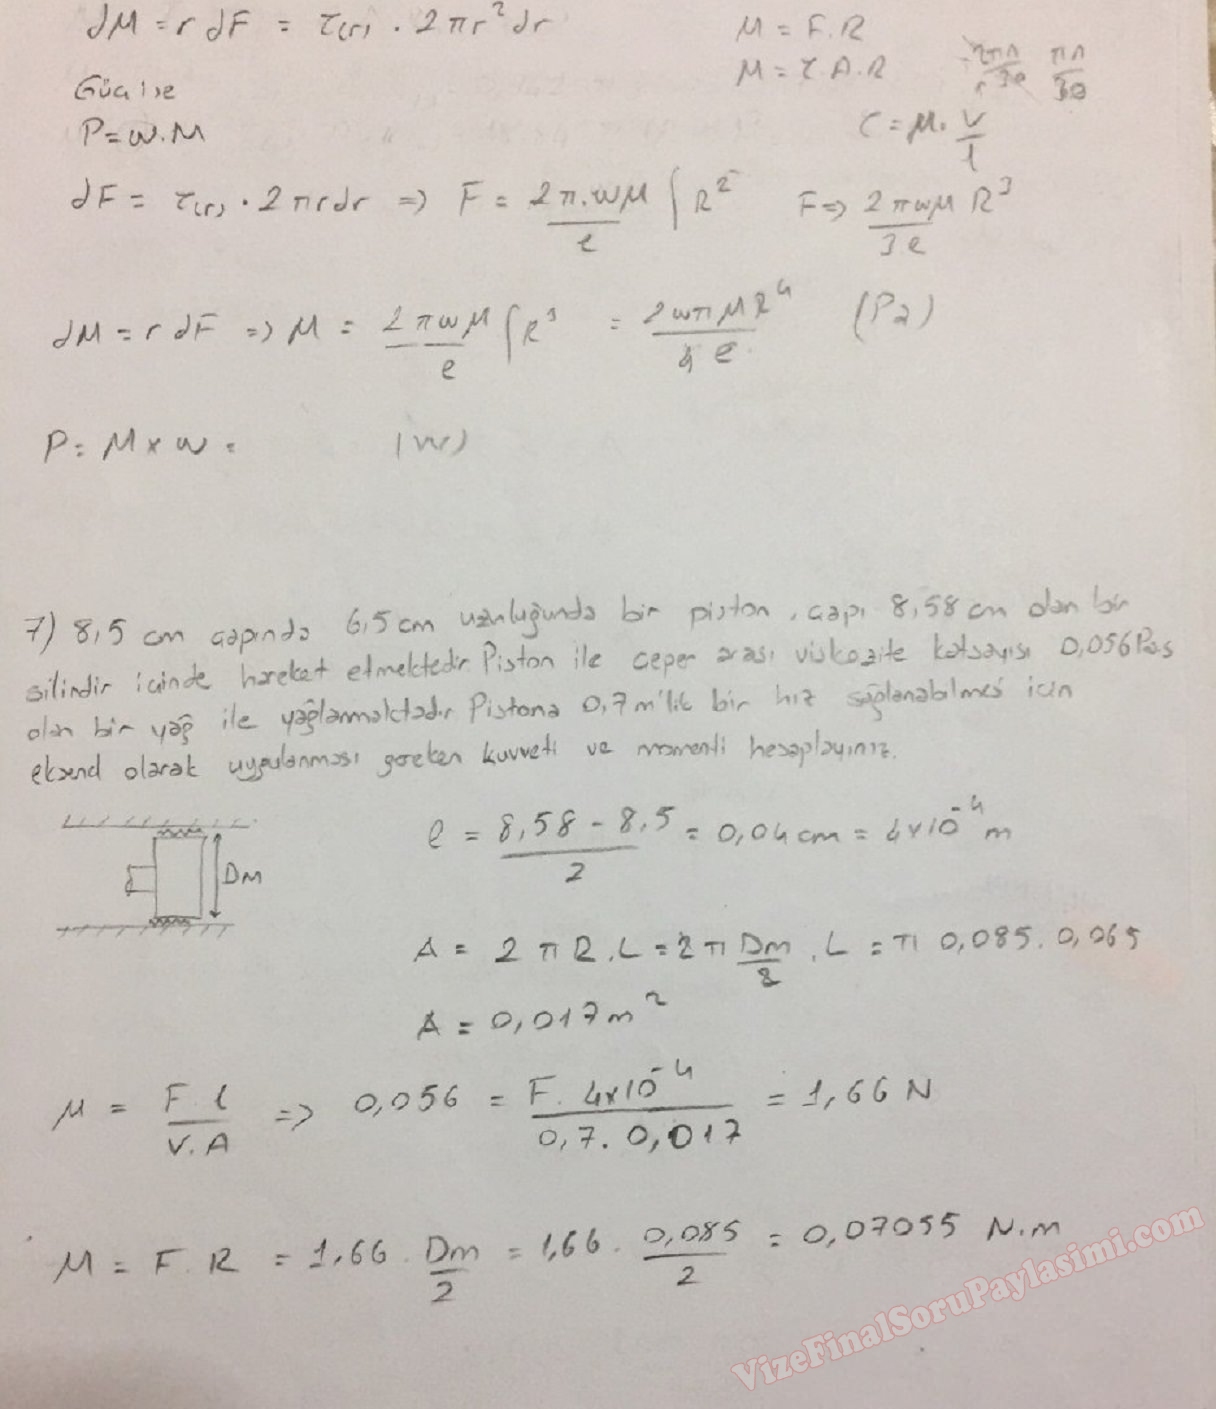 dM = r dF = τ(r) . 2πr²dr
M = F.R
M = τ.A.R
πn/30
Güç ise
P = w.M
τ = μ. V/l
dF = τ(r) . 2πrdr => F = 2π.wμ/e ∫R² F => 2πwμR³/3e
dM = r dF => M = 2πwμ/e ∫R³ = 2wπμR⁴/4e (Pa)
P = M x w = (W)
7) 8,5 cm çapında 6,5 cm uzunluğunda bir piston, çapı 8,58 cm olan bir
silindir içinde hareket etmektedir. Piston ile çeper arası viskozite katsayısı 0,056 Pa.s
olan bir yağ ile yağlanmaktadır. Pistona 0,7 m'lik bir hız sağlanabilmesi için
eksenel olarak uygulanması gereken kuvveti ve momenti hesaplayınız.
e = (8,58 - 8,5)/2 = 0,04 cm = 4x10⁻⁴ m
Dm
A = 2πR.L = 2π Dm/2 . L = π 0,085. 0,065
A = 0,017 m²
μ = F.l/V.A => 0,056 = F. 4x10⁻⁴/0,7. 0,017 = 1,66 N
M = F.R = 1,66. Dm/2 = 1,66. 0,085/2 = 0,07055 N.m
VizeFinalSoruPaylasimi.com